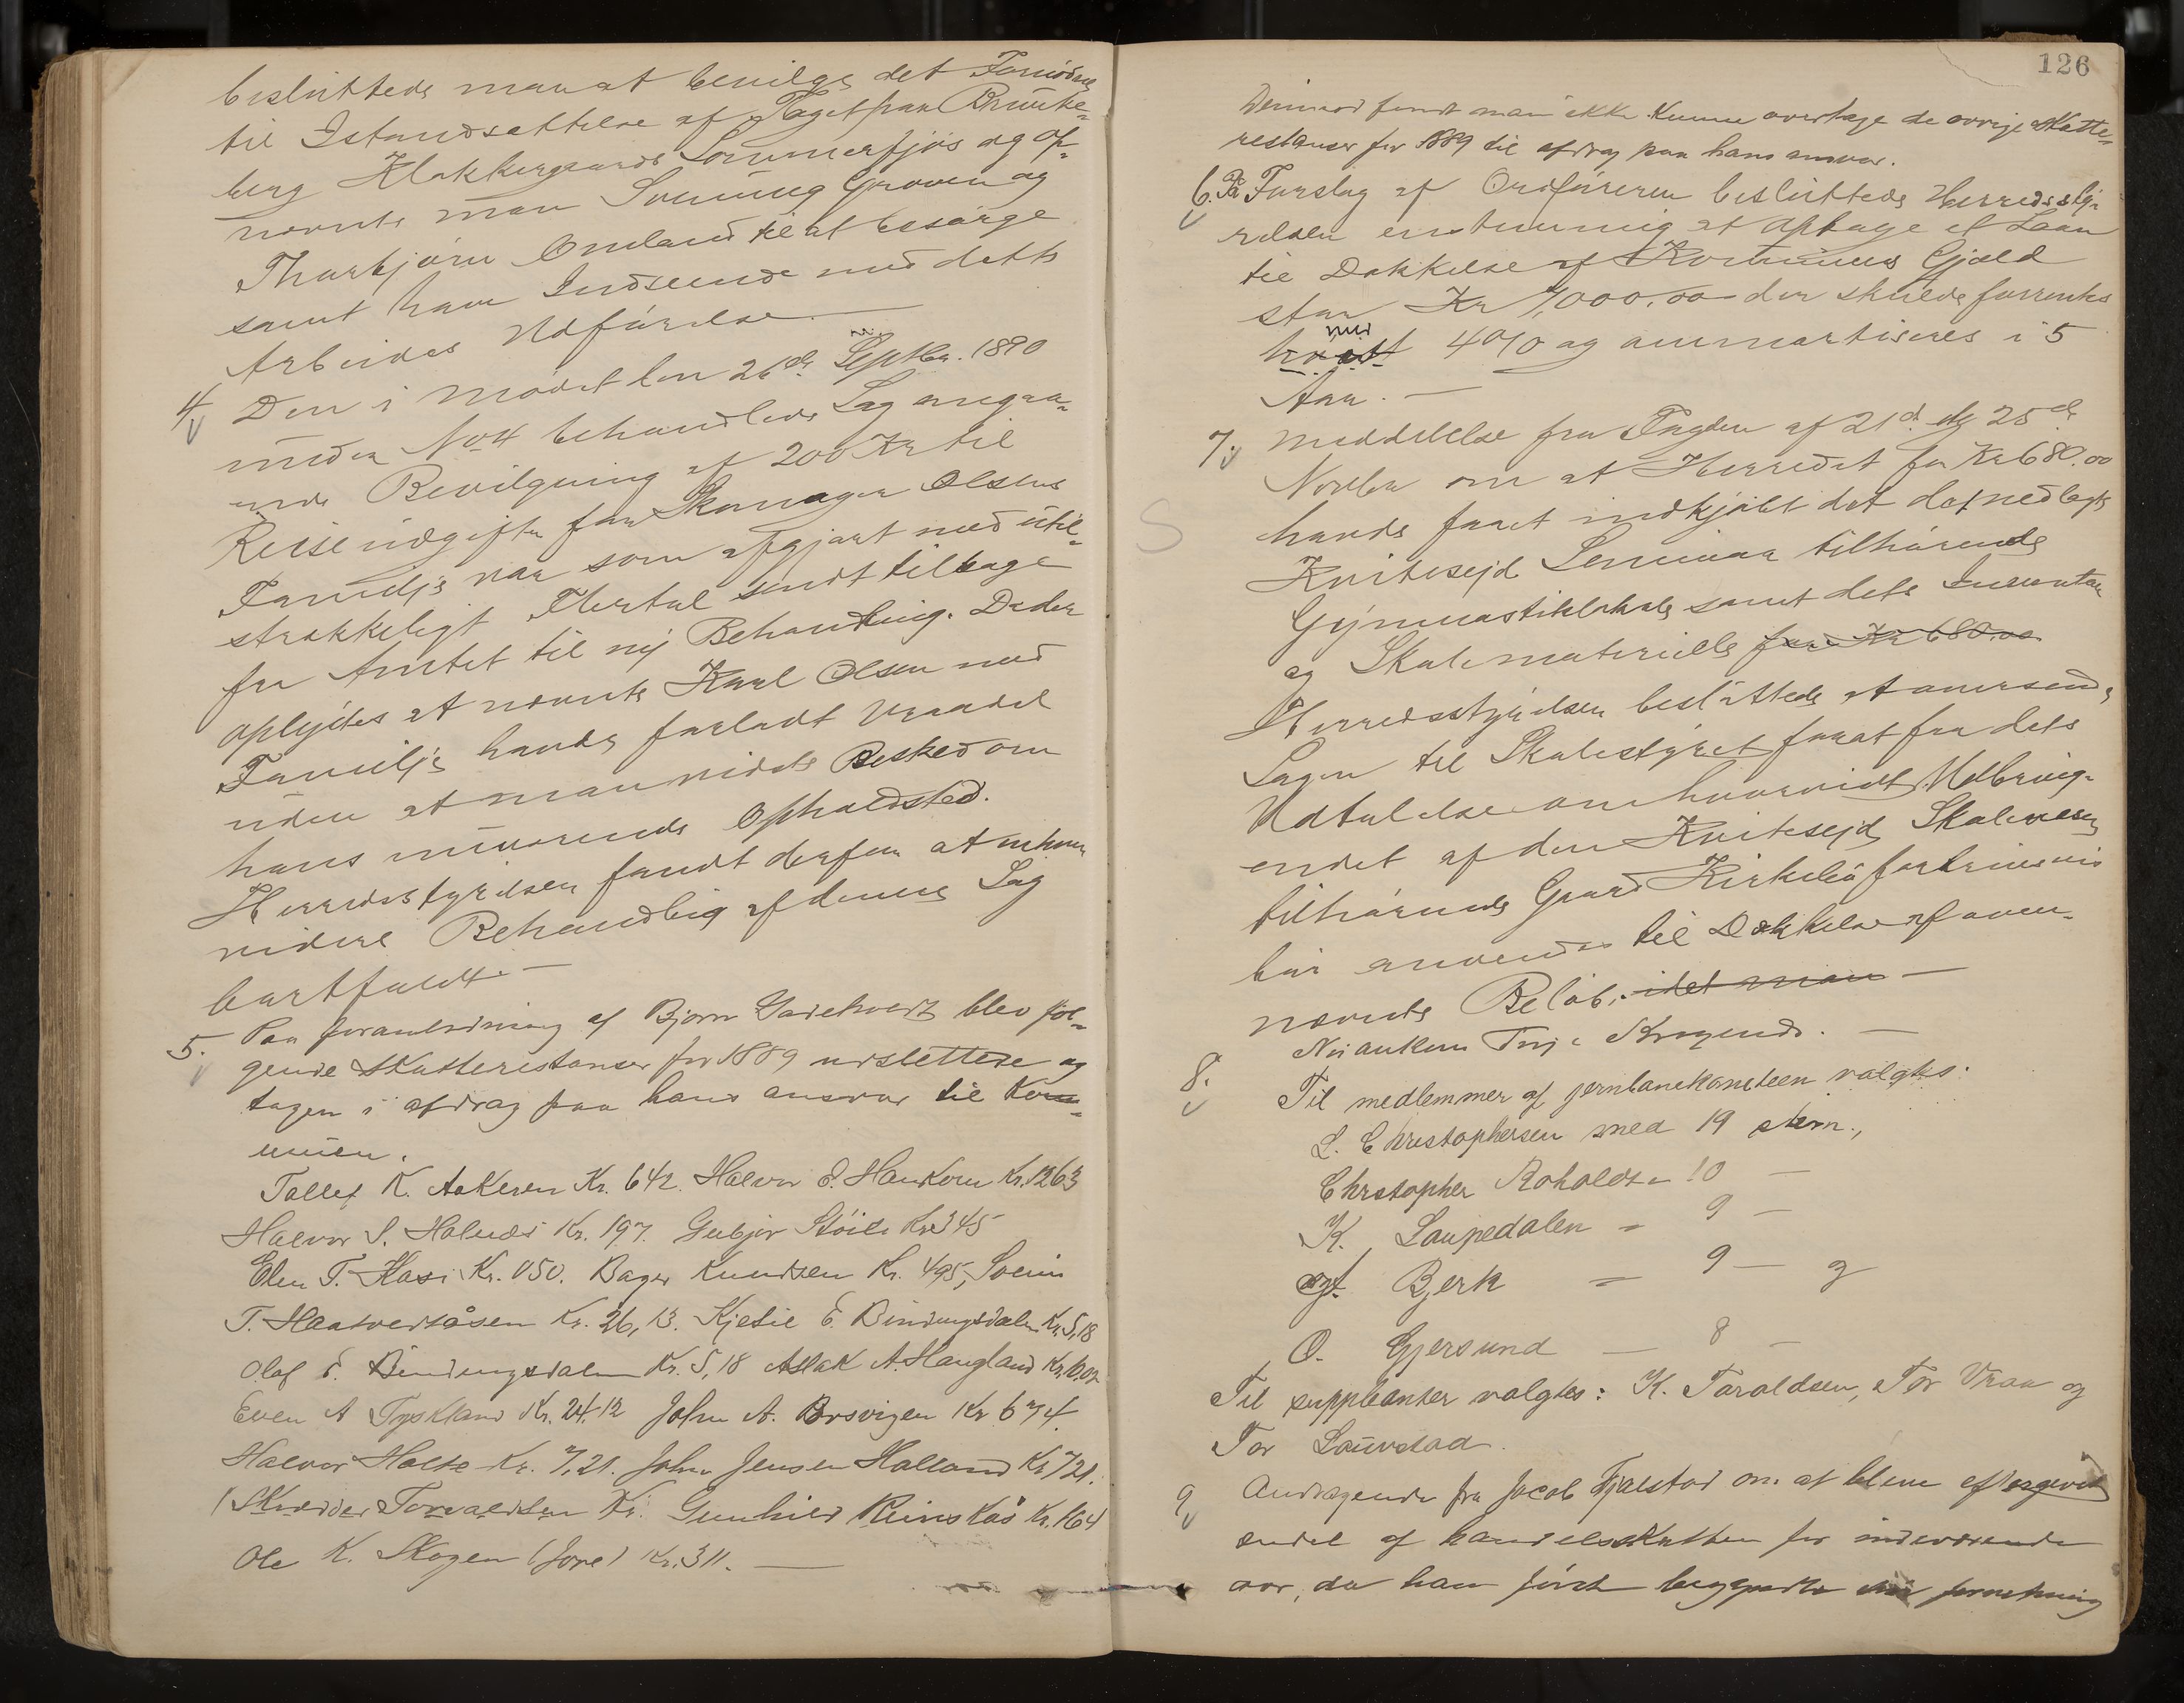 besluttede man at bevilge det Fornødne
til Istandsættelse af Taget paa Brunke-
berg Klokkergaards Sommerfjøs og op-
nævnte man Sveinung Groven og
Thorbjørn Omland til at besørge
samt have Indseende med dette
Arbeides Udførelse. —
4. Den i Mødet den 26de Septbr. 1890
under No 4 behandlede Sag angaa-
ende Bevilgning af 200 Kr til
Reiseudgifter for Skomager Olsens
Familje var som afgjort med util-
strækkeligt Flertal sendt tilbage
fra Amtet til ny Behandling. Da der
oplystes at nævnte Karl Olsen med
Familje havde forladt Vraadal
uden at man vidste Besked om
hans nuværende Opholdsted.
Herredsstyrelsen fandt derfor at enhver
videre Behandling af denne Sag
bortfaldt. —
5. Paa foranledning af Bjørn Gardekvert blev føl-
gende skatterestanser for 1889 udslettede og
tagen i afdrag paa hans ansvar til Kom-
munen.
Tallef K. Aakeren Kr. 642. Halvor S. Haukom Kr. 1263
Halvor S. Kr. 197. Gubjør Støile Kr 345
Elen T. Kasi Kr. 050. Bager Knudsen Kr. 495, Svein
T. Haatveitåsen Kr. 26,13. Kjetil E. Bindingsdalen Kr. 5,18
Olaf E. Bindingsdalen Kr. 5,18 Aslak A. Haugland Kr.
Even A Tyskland Kr. 24.12 John A. Borsvigen Kr 674
Halvor Holte Kr. 7,21. John Jensen Halland Kr 721.
(Skrædder Torvaldsen Kr. Gunhild Reinskås Kr. 164
Ole K. Skogen (Jore) Kr. 311. —
126
Derimod fandt man ikke kunne overtage de øvrige skatte-
restanser for 1889 til afdrag paa hans ansvar.
6. Pa Forslag af Ordføreren besluttede Herredssty-
relsen enstemmig at optage et Laan
til Dækkelse af Kommunens Gjæld
stor Kr 7,000,00 der skulde forrentes
med
4 % og ammortiseres i 5
Aar. —
7. Meddelelse fra Fogden af 21de og 25de
Novbr om at Herredet for Kr 680.00
havde faaet indkjøbt det det nedlagte
Kvitesejd Seminar tilhørende
Gymnastiklokale samt dets Inventar
og Skolematerielle for Kr 680.00
Herredsstyrelsen besluttede at oversende
Sagen til Skolestyret forat faa dets
Udtalelse om hvorvidt Udbring-
endet af den Kvitesejd Skolevesen
tilhørende Gaard Kirkebø fortrinsvis
bør anvendes til Dækkelse af oven-
nævnte Beløb. idet man —
Terje —
8. Til medlemmer af jernbanekomiteen valgtes:
L. Christophersen med 19 stem.,
Christopher Roholdt – 10 —
K. Laupedalen – 9 —
Bjerk – 9 — og
O. Gjersund — 8 —
Til suppleanter valgtes: K. Taraldsen, Tor Vraa og
Tor Laurstad.
9 Andragende fra Jacob Fjalestad om at blive eftergivet
endel af handelsskatten for indeværende
aar, da han først begyndte sin forretning